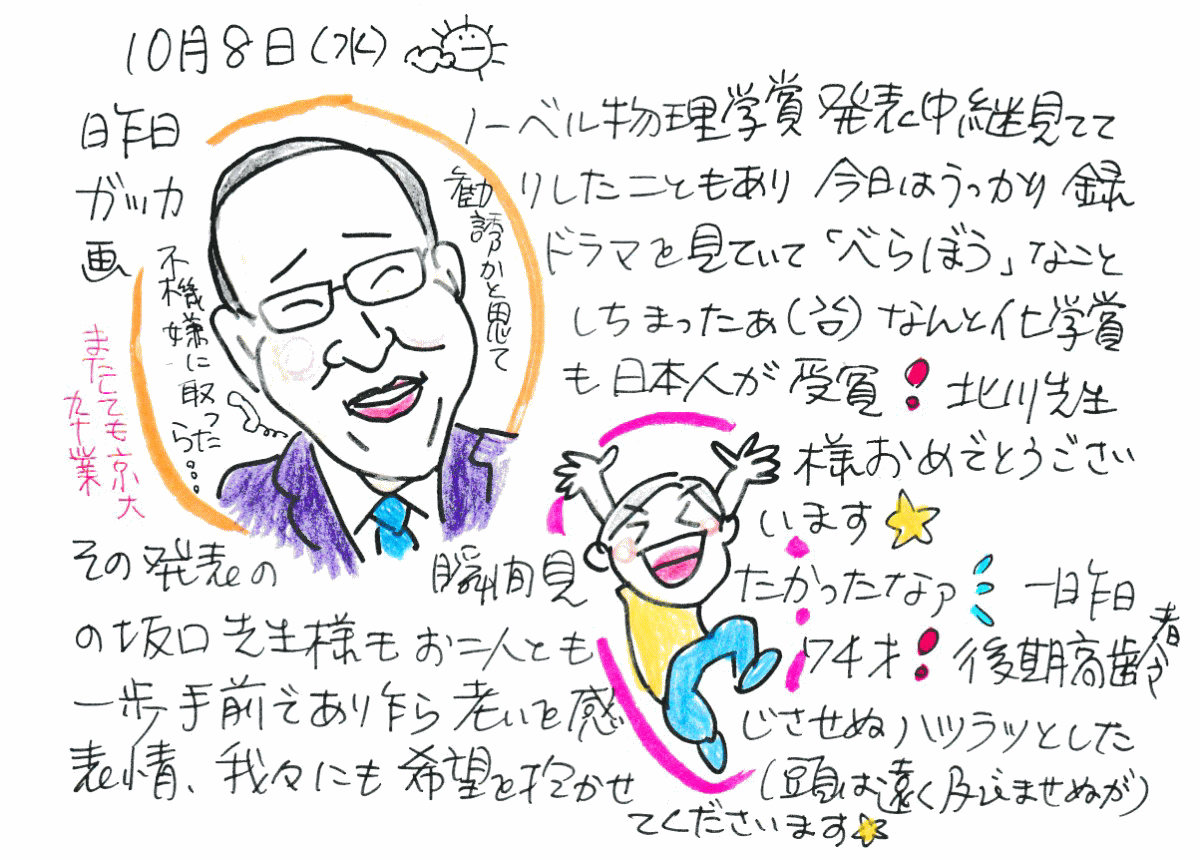 10月8日(水)
昨日 ノーベル物理学賞 発表中継見てて
ガッカりしたこともあり 今日はうっかり 録
画ドラマを見ていて「べらぼう」なこと
しちまったぁ(治) なんと化学賞
も日本人が受賞! 北川先生
様おめでとうござい
ます☆
勧誘かと思て
不機嫌に取ったら...
またしても京大
卒業
その発表の瞬間見たかったなァ 一昨日
の坂口先生様もお二人とも 74才! 後期高齢者
一歩手前であり乍ら老いを感じさせぬハツラツとした
表情、我々にも希望を抱かせ(頭は遠く及びませぬが)
てくださいます☆